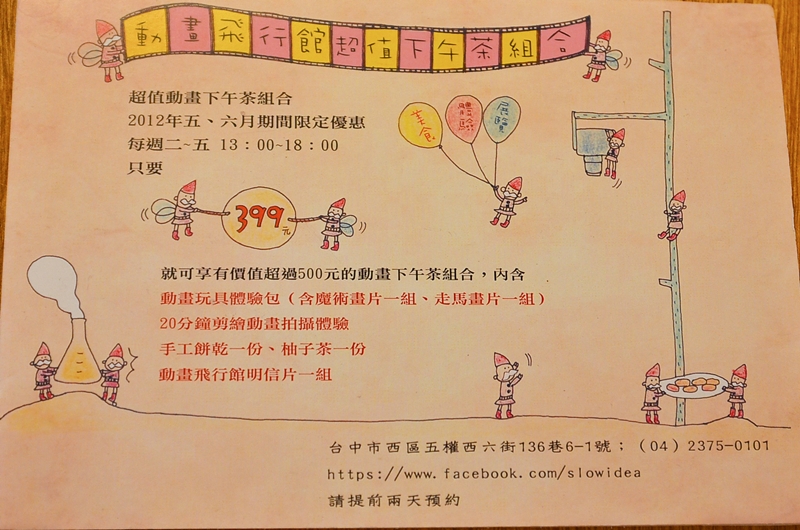 動畫飛行館超值下午茶組合
超值動畫下午茶組合
2012年五、六月期間限定優惠
每週二~五 13：00~18：00
只要
美食
體驗
展覽
399元
就可享有價值超過500元的動畫下午茶組合，內含
動畫玩具體驗包（含魔術畫片一組、走馬畫片一組）
20分鐘剪繪動畫拍攝體驗
手工餅乾一份、柚子茶一份
動畫飛行館明信片一組
台中市西區五權西六街136巷6-1號；（04）2375-0101
https://www.facebook.com/slowidea
請提前兩天預約